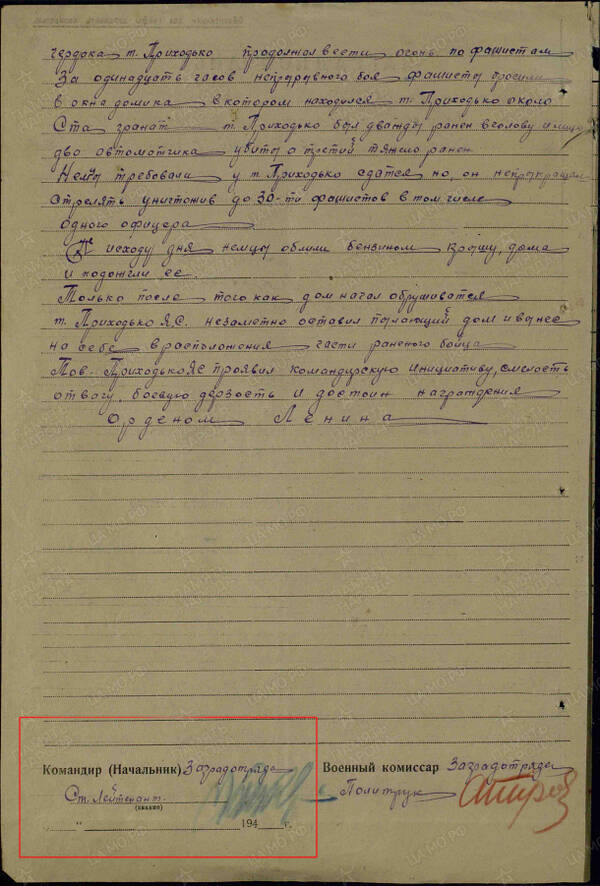 чердока т. Приходько продолжал вести огонь по фашистам
За одинадцать часов непрерывного боя фашисты бросили
в окна домика в котором находился т. Приходько около
Ста гранат т. Приходько был дважды ранен в голову и
два автоматчика убиты а третий тяжело ранен
Немцы требовали у т. Приходько сдатся но, он непрекращал
стрелять уничтожив до 30-ти фашистов в том числе
одного офицера
К исходу дня немцы облили бензином крышу, дома
и подожгли ее.
Только после того как дом начал обрушиватся
т. Приходько Я.С. незаметно оставил пылающий дом и вынес
на себе в расположения части раненого бойца
Тов. Приходько ЯС проявил командирскую инициативу, смелость
отвагу, боевую дерзость и достоин награждения
Орденом Ленина
Командир (Начальник) Заградотряда
Военный комиссар Заградотряда
Ст. Лейтенант
Политрук
(звание)
„ “ 194 г.
ЦАМО.РФ